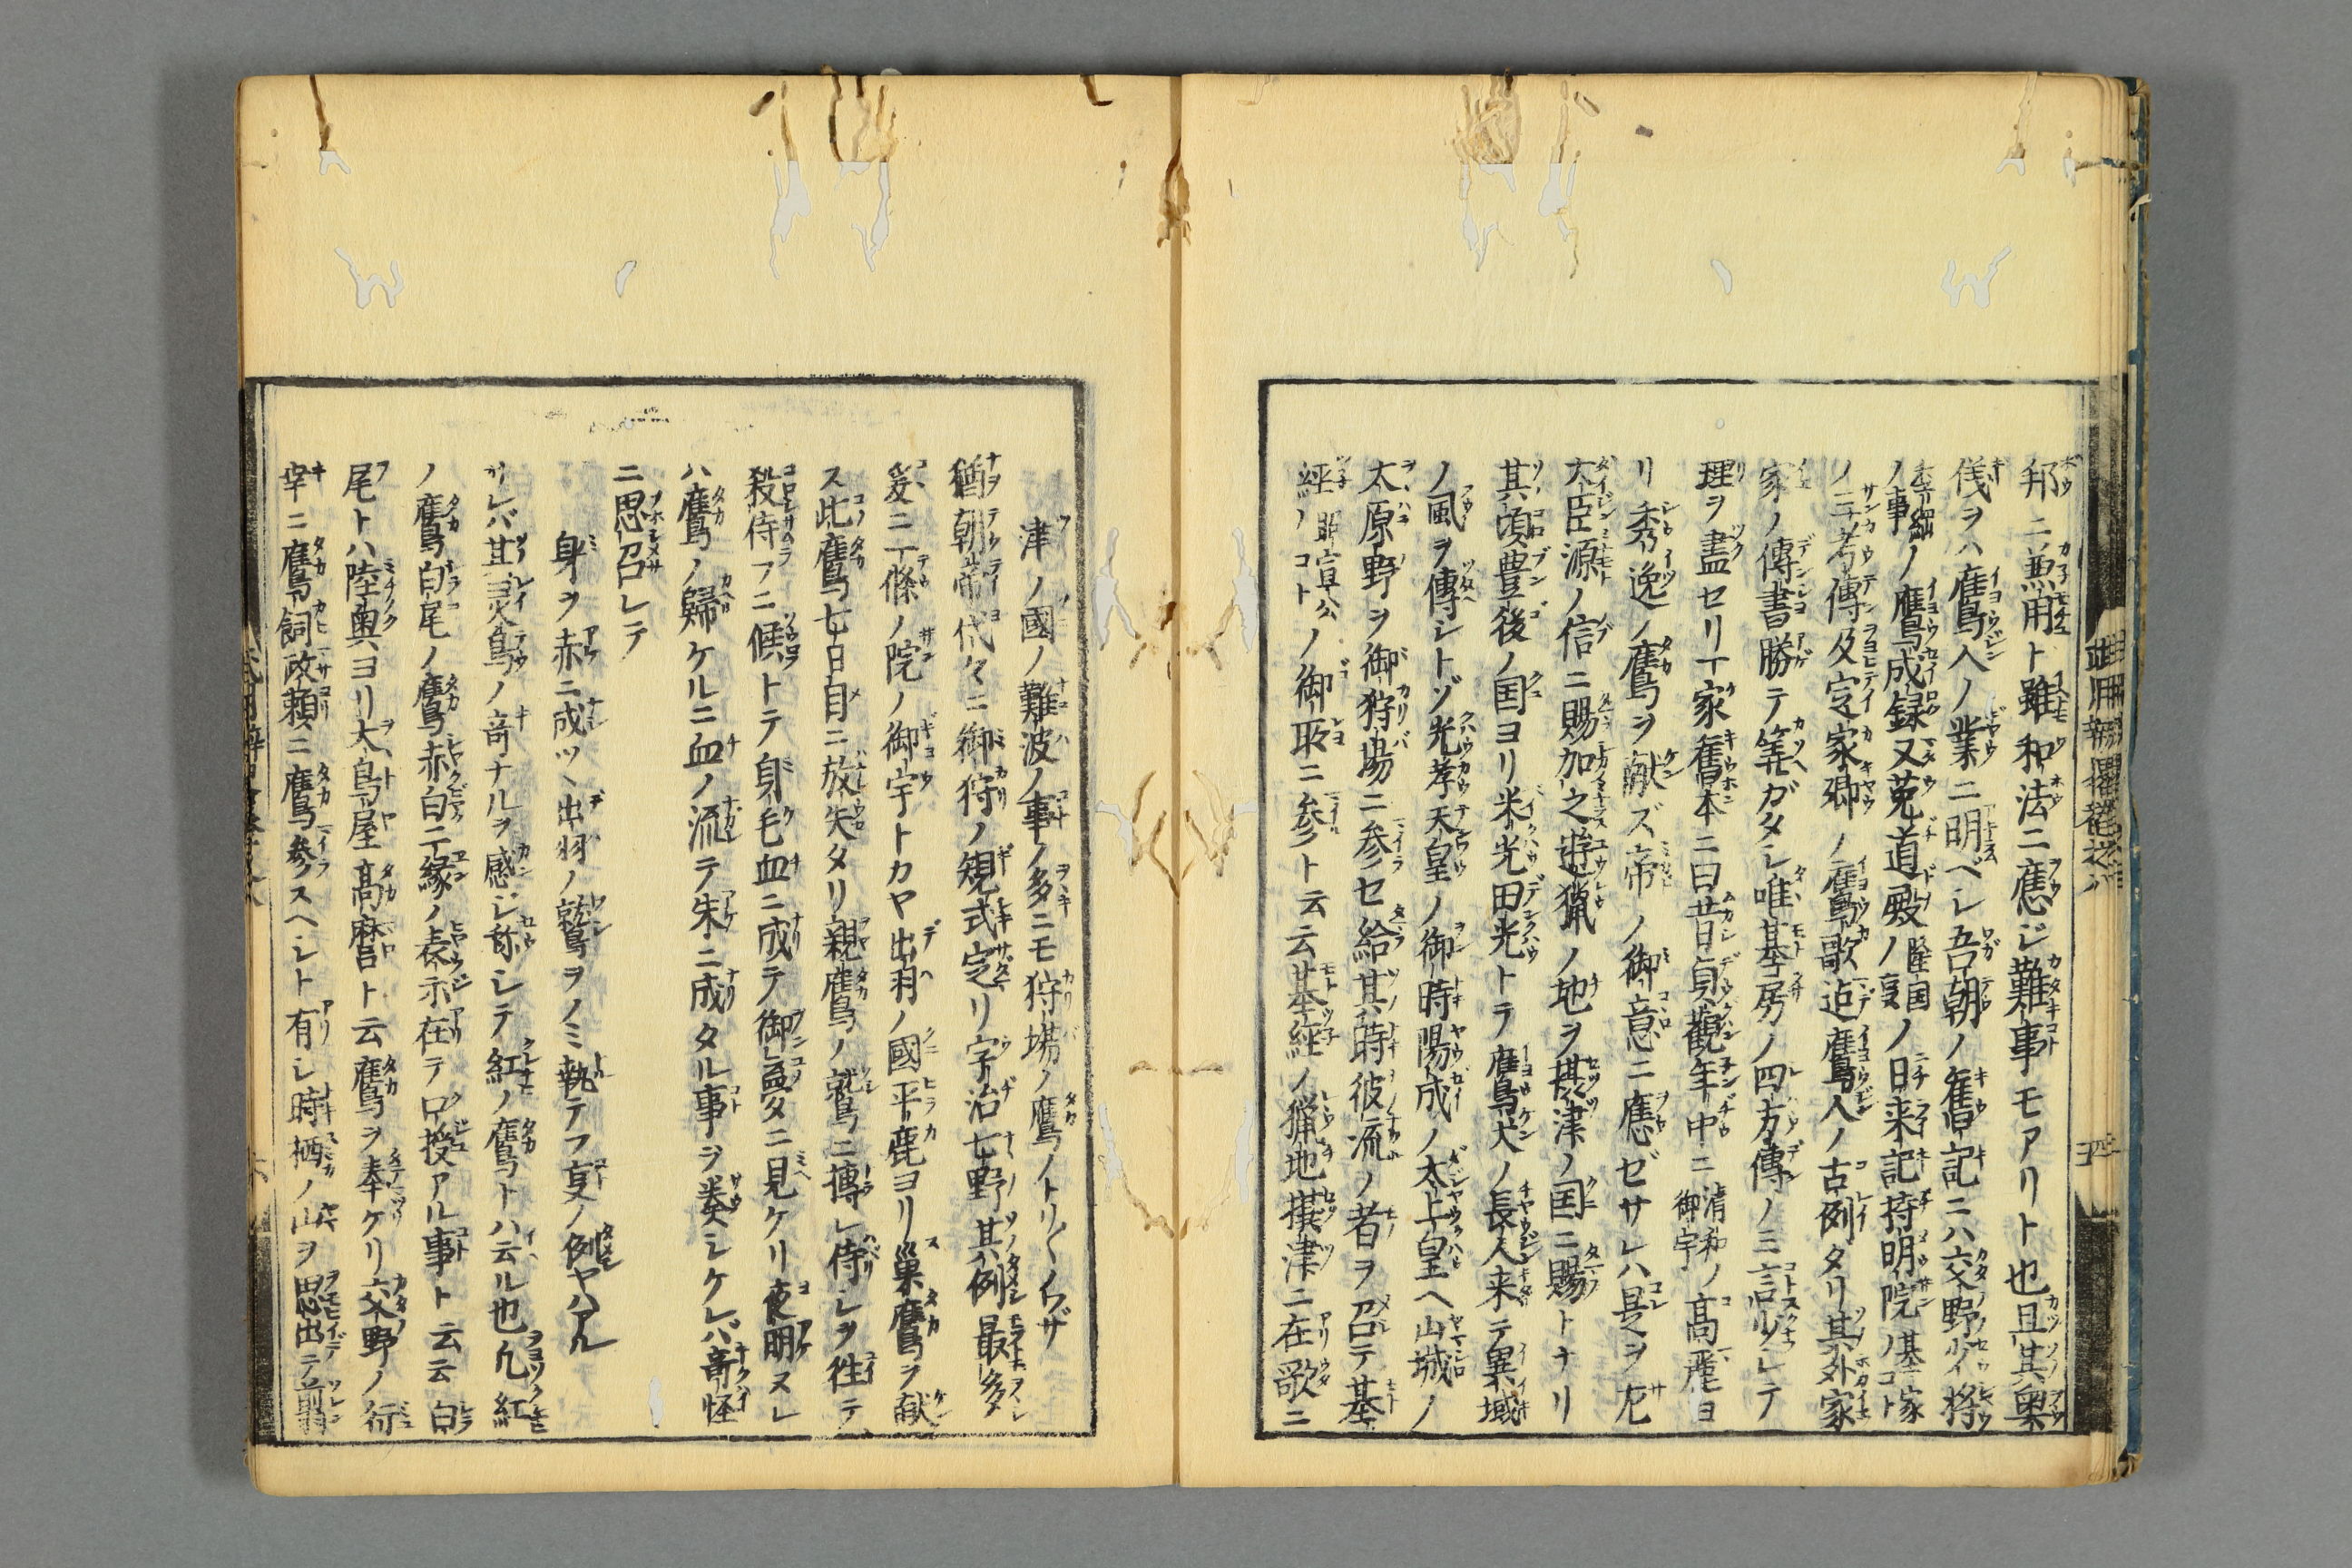 邦ニ兼用ト雖和法ニ應ジ難事モアリト也且其奥
儀ヲハ鷹人ノ業ニ明ベシ吾朝ノ舊記ニハ交野少将
ノ事ノ鷹成録又菟道殿隆国ノ叓ノ日来記持明院基家ノコト
ノ三考傳及定家卿ノ鷹歌迠鷹人ノ古例タリ其外家
家ノ傳書勝テ筭ガタシ唯基房ノ四方傳ノミ言少シテ
理ヲ盡セリ一家舊本ニ曰昔貞觀年中ニ清和御宇ノ高麗ヨ
リ秀逸ノ鷹ヲ献ズ帝ノ御意ニ應ゼサレハ是ヲ左
大臣源ノ信ニ賜加之遊獵ノ地ヲ摂津ノ国ニ賜トナリ
其頃豊後ノ国ヨリ米光田光トテ鷹犬ノ長人来テ異域
ノ風ヲ傳シトゾ光孝天皇ノ御時陽成ノ太上皇ヘ山城ノ
大原野ヲ御狩場ニ参セ給其時彼流ノ者ヲ召テ基
經ノ昭宣公ノコト御取ニ参ト云云基經ノ獵地摂津ニ在歌ニ
津ノ國ノ難波ノ事ノ多ニモ狩場ノ鷹ノトリ〱イワザ
猶朝帝代々ニ御狩ノ規式定リ宇治七野其例最多
爰ニ一條ノ院ノ御宇トカヤ出羽ノ國平鹿ヨリ巣鷹ヲ献
ス此鷹七日目ニ放失タリ親鷹ノ鷲ニ摶レ侍シヲ往テ
殺侍フニ候トテ身毛血ニ成テ御夢ニ見ケリ夜明ヌレ
ハ鷹ノ歸ケルニ血ノ流テ朱ニ成タル事ヲ奏シケレバ竒怪
ニ思召シテ
身ヲ赤ニ成ツヽ出羽ノ鷲ヲノミ執テフ叓ノ例ヤハアル
カレバ其灵鳥ノ竒ナルヲ感ジ称シテ紅ノ鷹トハ云ル也凢紅
ノ鷹白尾ノ鷹赤白二縁ノ表示在テ口授アル事ト云云白
尾トハ陸奥ヨリ大鳥屋高麿ト云鷹ヲ奉ケリ交野ノ行
幸ニ鷹飼政頼ニ鷹参スヘシト有シ時栖ノ山ヲ思出テ翦